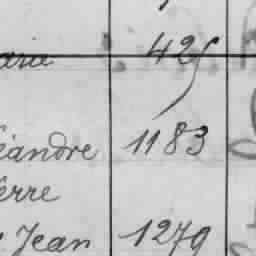 425
éandre 1183
erre
Jean 1279